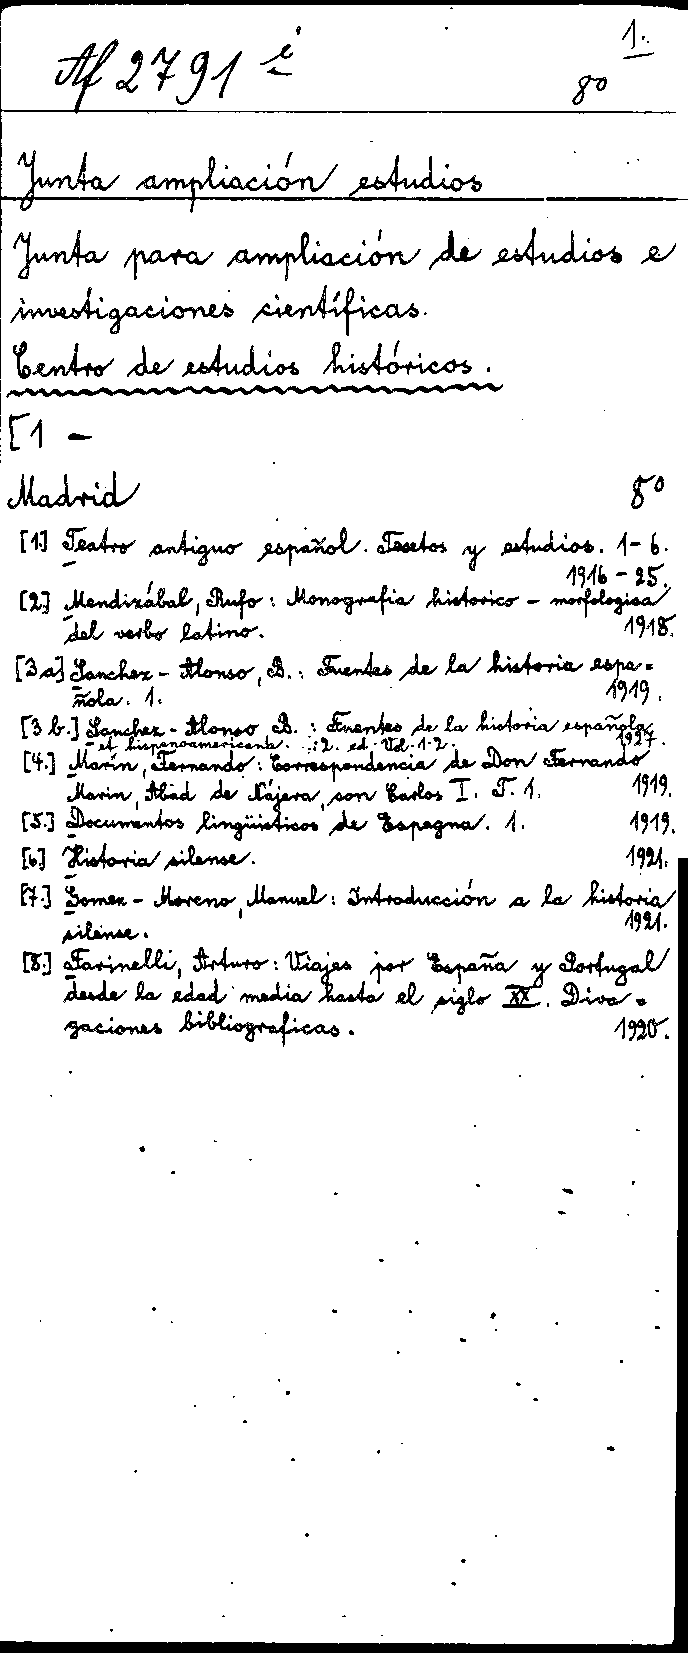 1.
Af 2791 i
8°
Junta ampliación estudios
Junta para ampliación de estudios e
investigaciones científicas.
Centro de estudios históricos.
[1 -
Madrid 8°
[1.] Teatro antiguo español. Textos y estudios. 1-6.
1916-25.
[2.] Mendizábal, Rufo: Monografia historico-morfologica
del verbo latino. 1918.
[3a] Sanchez-Alonso, B.: Fuentes de la historia espa=
ñola. 1. 1919.
[3b.] Sanchez-Alonso B.: Fuentes de la historia española
et hispanoamericana. 2. ed. Vol. 1-2. 1927.
[4.] Marin, Fernando: Correspondencia de Don Fernando
Marin, Abad de Nájera, con Carlos I. T. 1. 1919.
[5.] Documentos lingüisticos de Espagna. 1. 1919.
[6.] Historia silense. 1921.
[7.] Gomez-Moreno, Manuel: Introducción a la historia
silense. 1921.
[8.] Farinelli, Arturo: Viajes por España y Portugal
desde la edad media hasta el siglo XX. Diva=
gaciones bibliograficas. 1920.